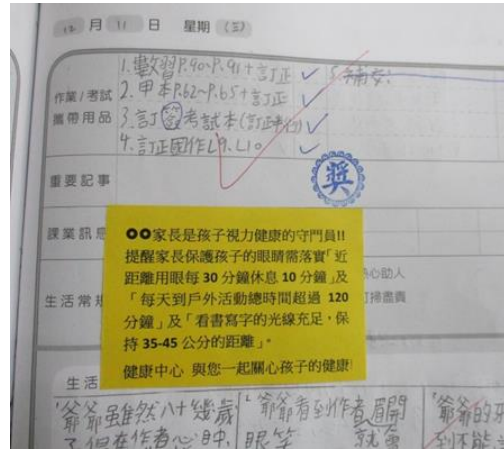 12 月 11 日 星期 (三)
作業/考試
攜帶用品
1. 數習P.90~P.91+訂正
2. 甲本P.62~P.65+訂正
3. 訂簽考試本(訂正
4. 訂正國作L9、L10
5. 補交:
重要記事
獎
課業訊息
生活常規
心助人
掃盡責
●●家長是孩子視力健康的守門員!!
提醒家長保護孩子的眼睛需落實「近
距離用眼每 30 分鐘休息 10 分鐘」及
「每天到戶外活動總時間超過 120
分鐘」及「看書寫字的光線充足,保
持 35-45 公分的距離」。
健康中心 與您一起關心孩子的健康
生活
爺爺雖然八十幾歲
了,但在作者心目中,
爺爺看到作者眉開
眼笑 就
爺爺的牙
到不能